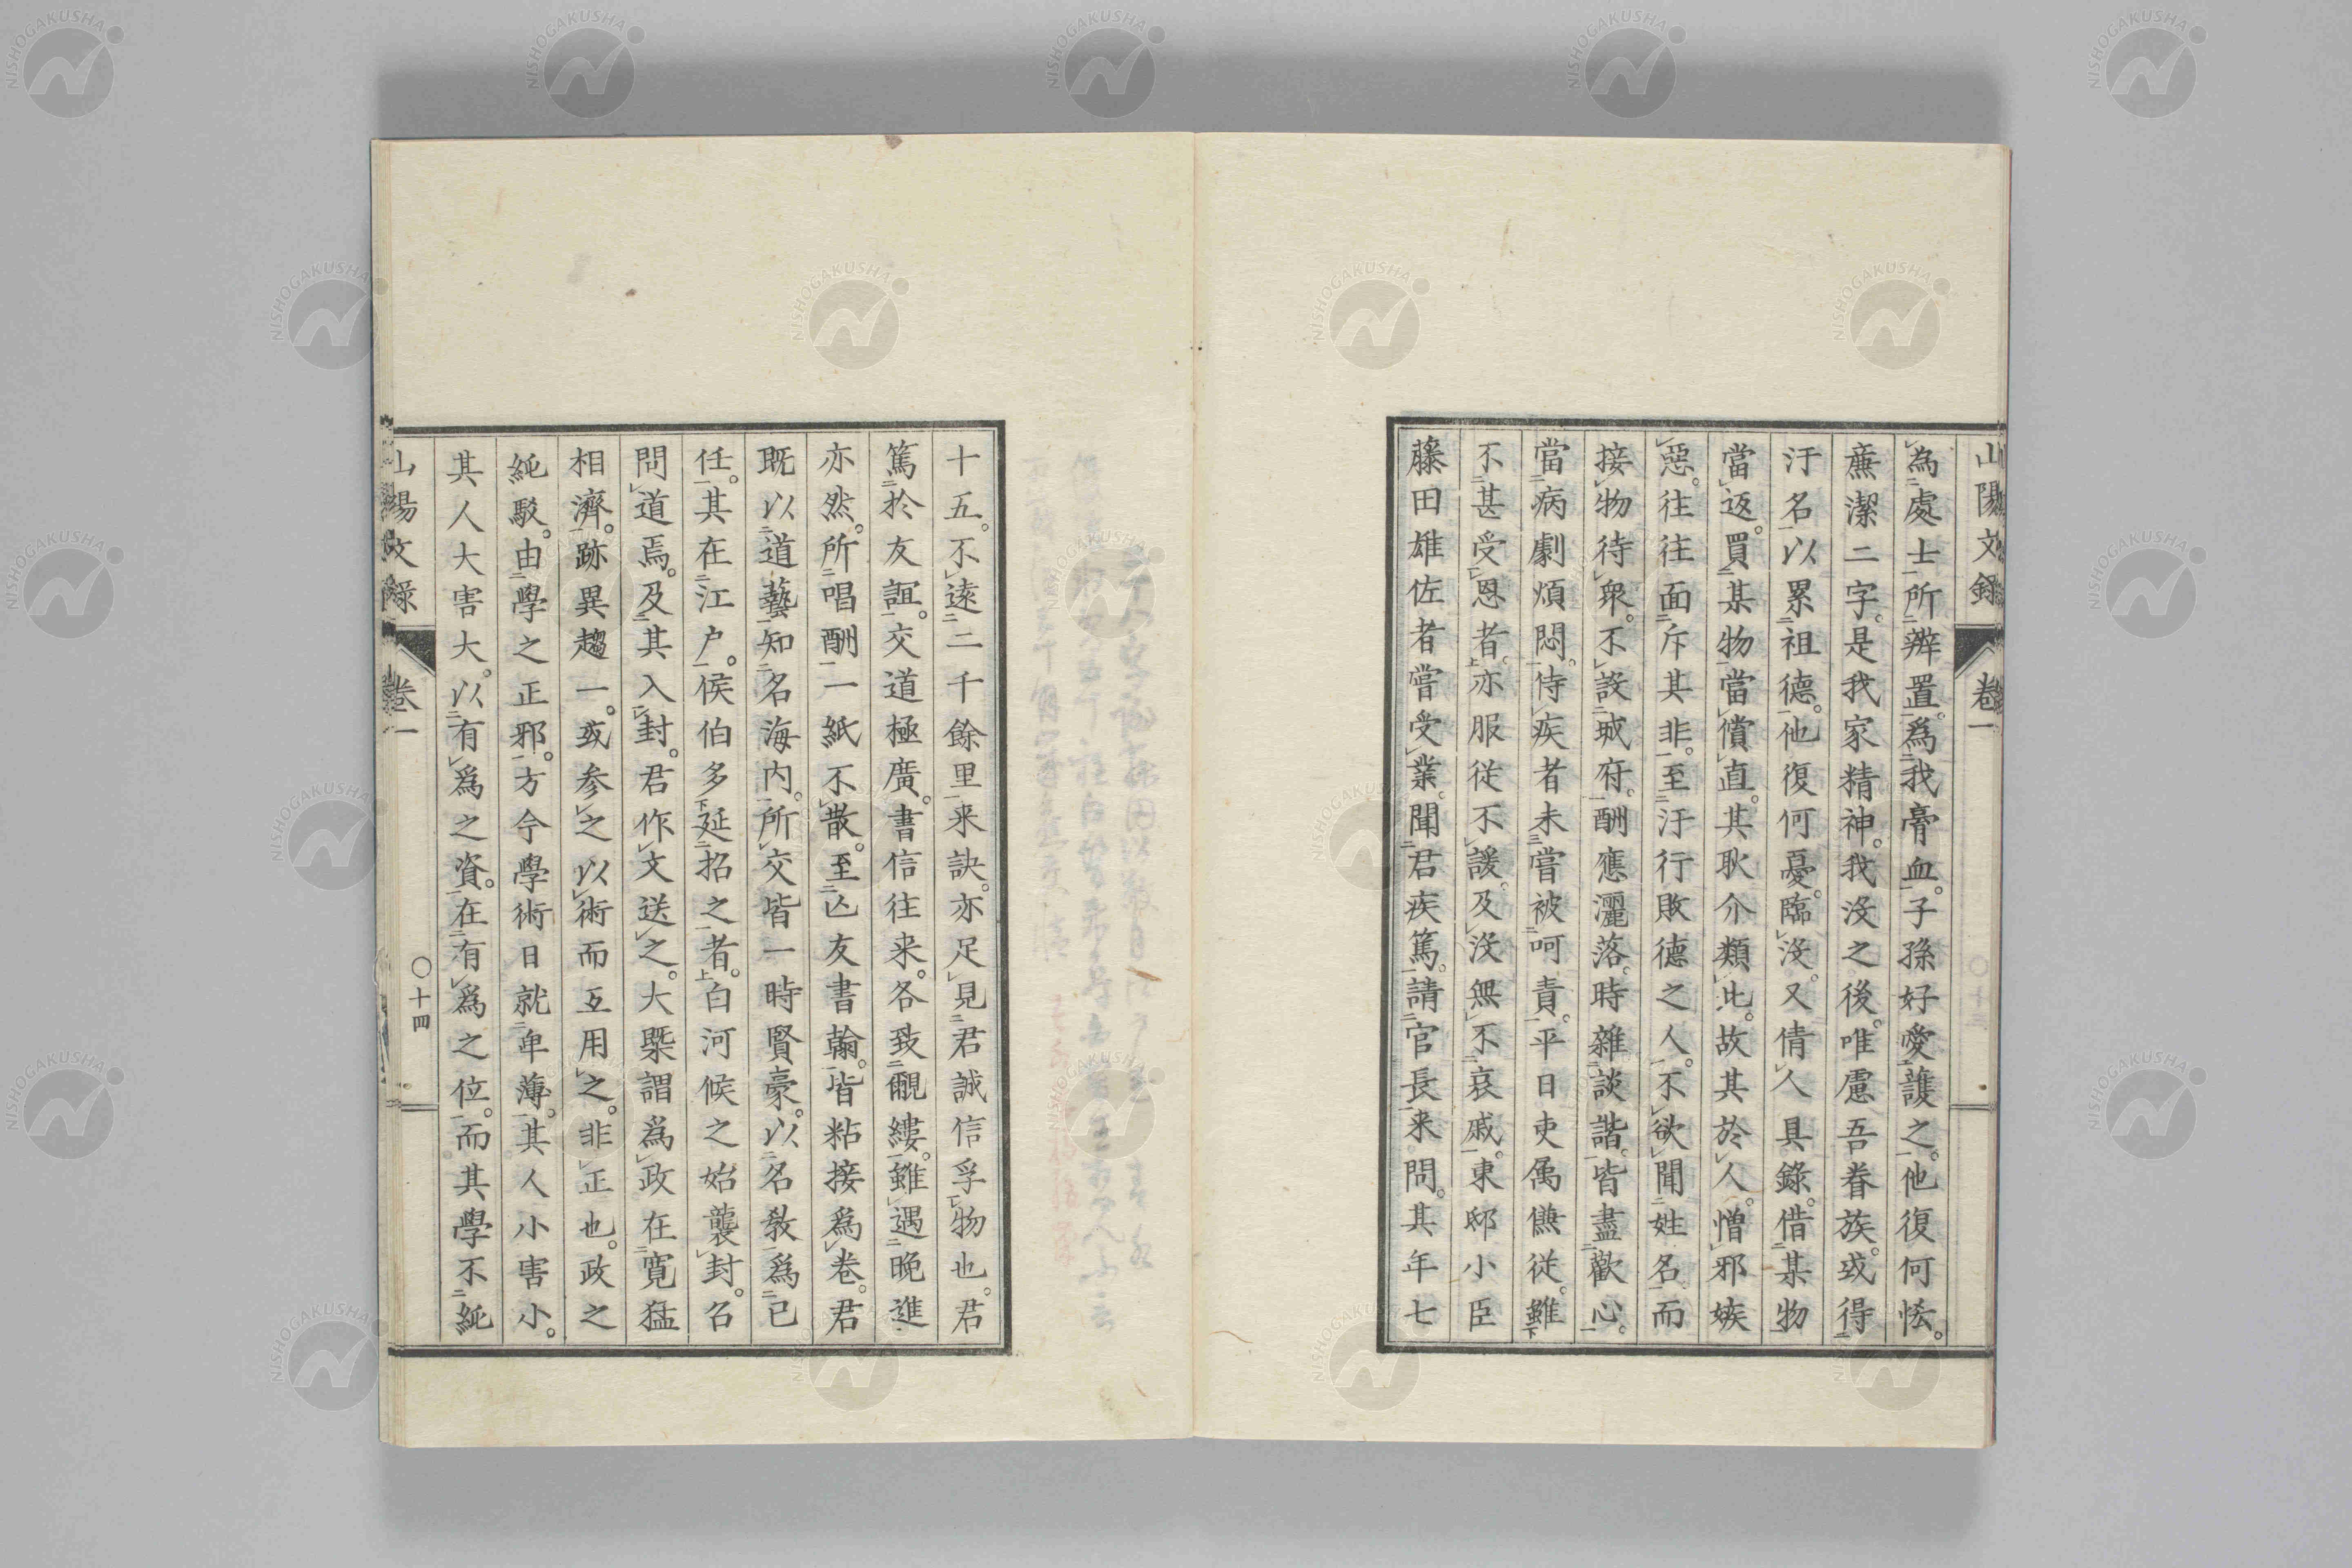 山陽文錄 卷一
為處士所辦置。爲我膏血。子孫好愛護之。他復何恡。
㢘潔二字。是我家精神。我沒之後。唯慮吾眷族。或得
汙名以累祖德。他復何憂。臨沒。又倩人具錄。借某物
當返。買某物當償直。其耿介類此。故其於人。憎邪嫉
惡。往往面斥其非。至汙行敗德之人。不欲聞姓名。而
接物待衆。不設城府。酬應灑落。時雜談諧。皆盡歡心。
當病劇煩悶。侍疾者未嘗被呵責。平日吏属傔從。雖
不甚受恩者。亦服從不諼。及沒無不哀戚。東邸小臣
藤田雄佐者嘗受業。聞君疾篤。請官長来問。其年七
十五。不遠二千餘里来訣。亦足見君誠信孚物也。君
篤於友誼。交道極廣。書信往来。各致覼縷。雖遇晚進
亦然。所唱酬一紙不散。至亾友書翰。皆粘接爲卷。君
既以道藝知名海内。所交皆一時賢豪。以名教爲已
任。其在江户。侯伯多延招之者。白河候之始襲封。召
問道焉。及其入封。君作文送之。大槩謂爲政在寬猛
相濟。跡異趨一。或参之以術而互用之。非正也。政之
純駁。由學之正邪。方今學術日就卑薄。其人小害小。
其人大害大。以有爲之資。在有爲之位。而其學不純
山陽文錄 卷一 〇十四
NISHOGAKUSHA